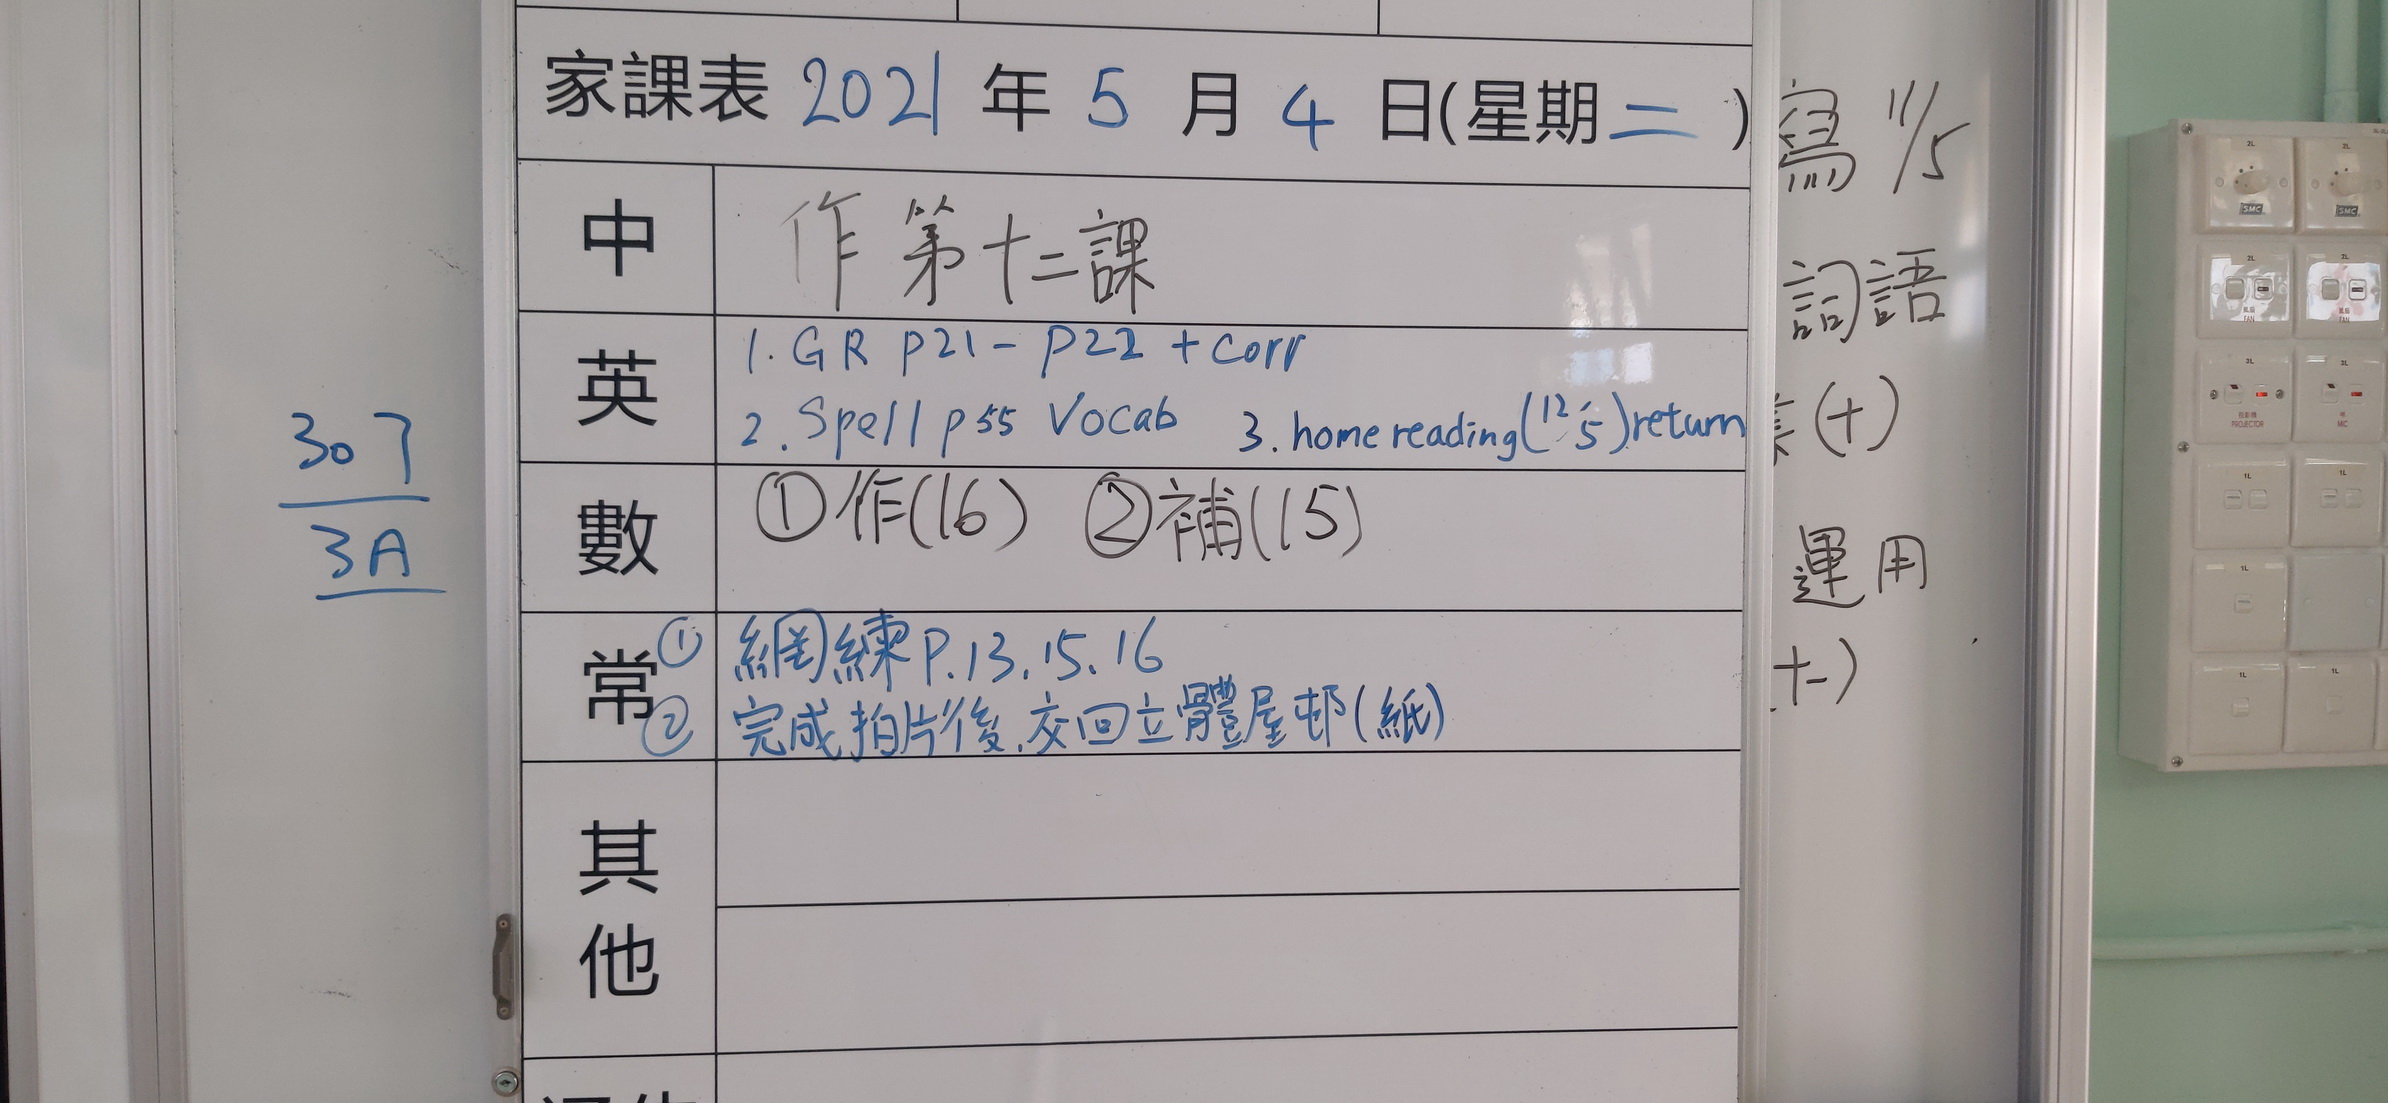 家課表 2021 年 5 月 4 日(星期二)
中
作 第十二課
英
1. GR P21 - P22 + corr
2. Spell p55 Vocab 3. home reading (12/5) return
數
①作(16) ②補(15)
常
① 網練 P.13.15.16
② 完成拍片後,交回立體屋邨(紙)
其他
307
3A
寫 11/5
詞語
(十)
運用
十二)
2L
2L
SMC
SMC
2L
2L
FAN
FAN
2L
2L
PROJECTOR
MIC
1L
1L
1L
1L
1L